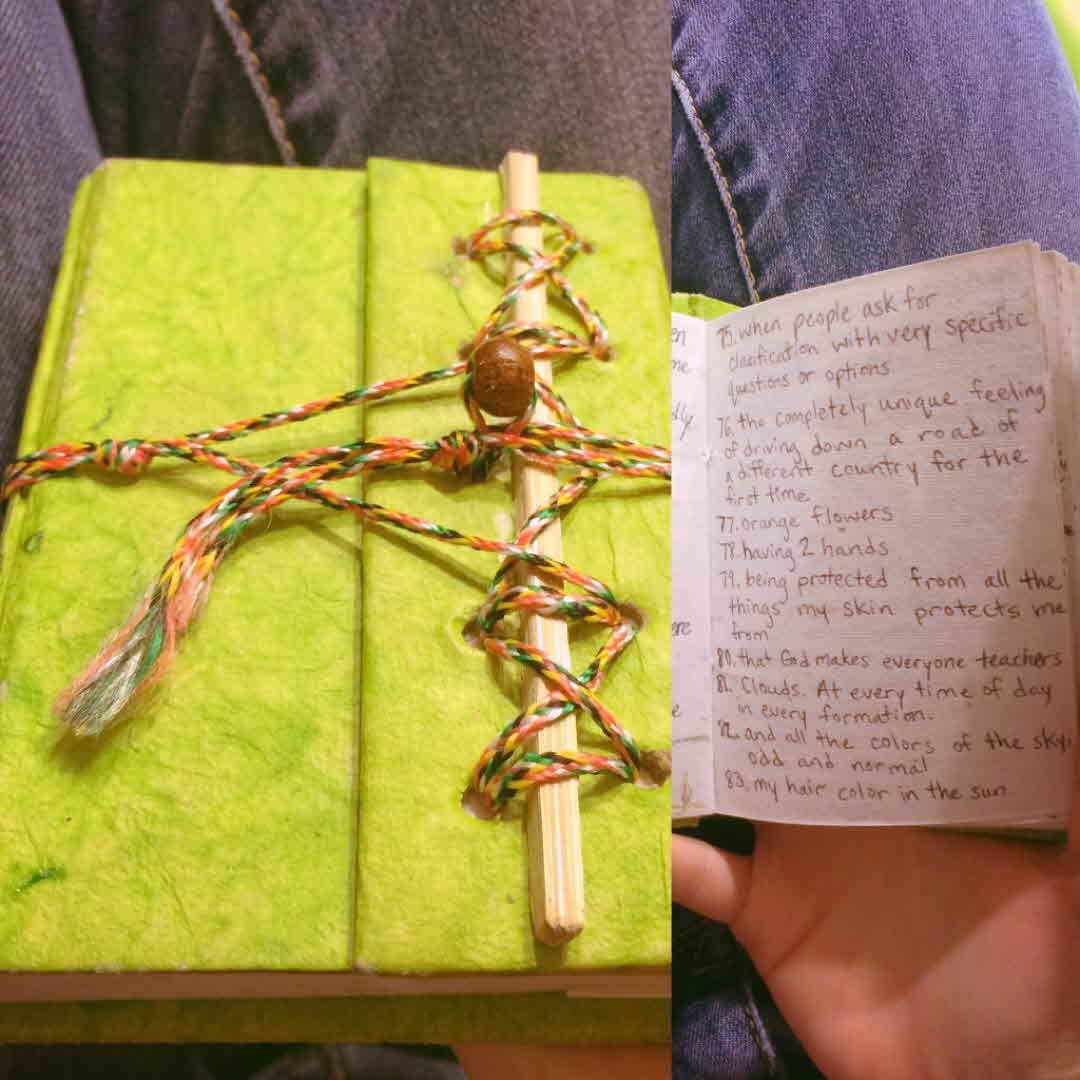 en
me
tly
ere
e
75. when people ask for
clarification with very specific
questions or options.
76. the completely unique feeling
of driving down a road of
a different country for the
first time.
77. orange flowers
78. having 2 hands
79. being protected from all the
things my skin protects me
from
80. that God makes everyone teachers
81. Clouds. At every time of day
in every formation.
82. and all the colors of the sky,
odd and normal
83. my hair color in the sun